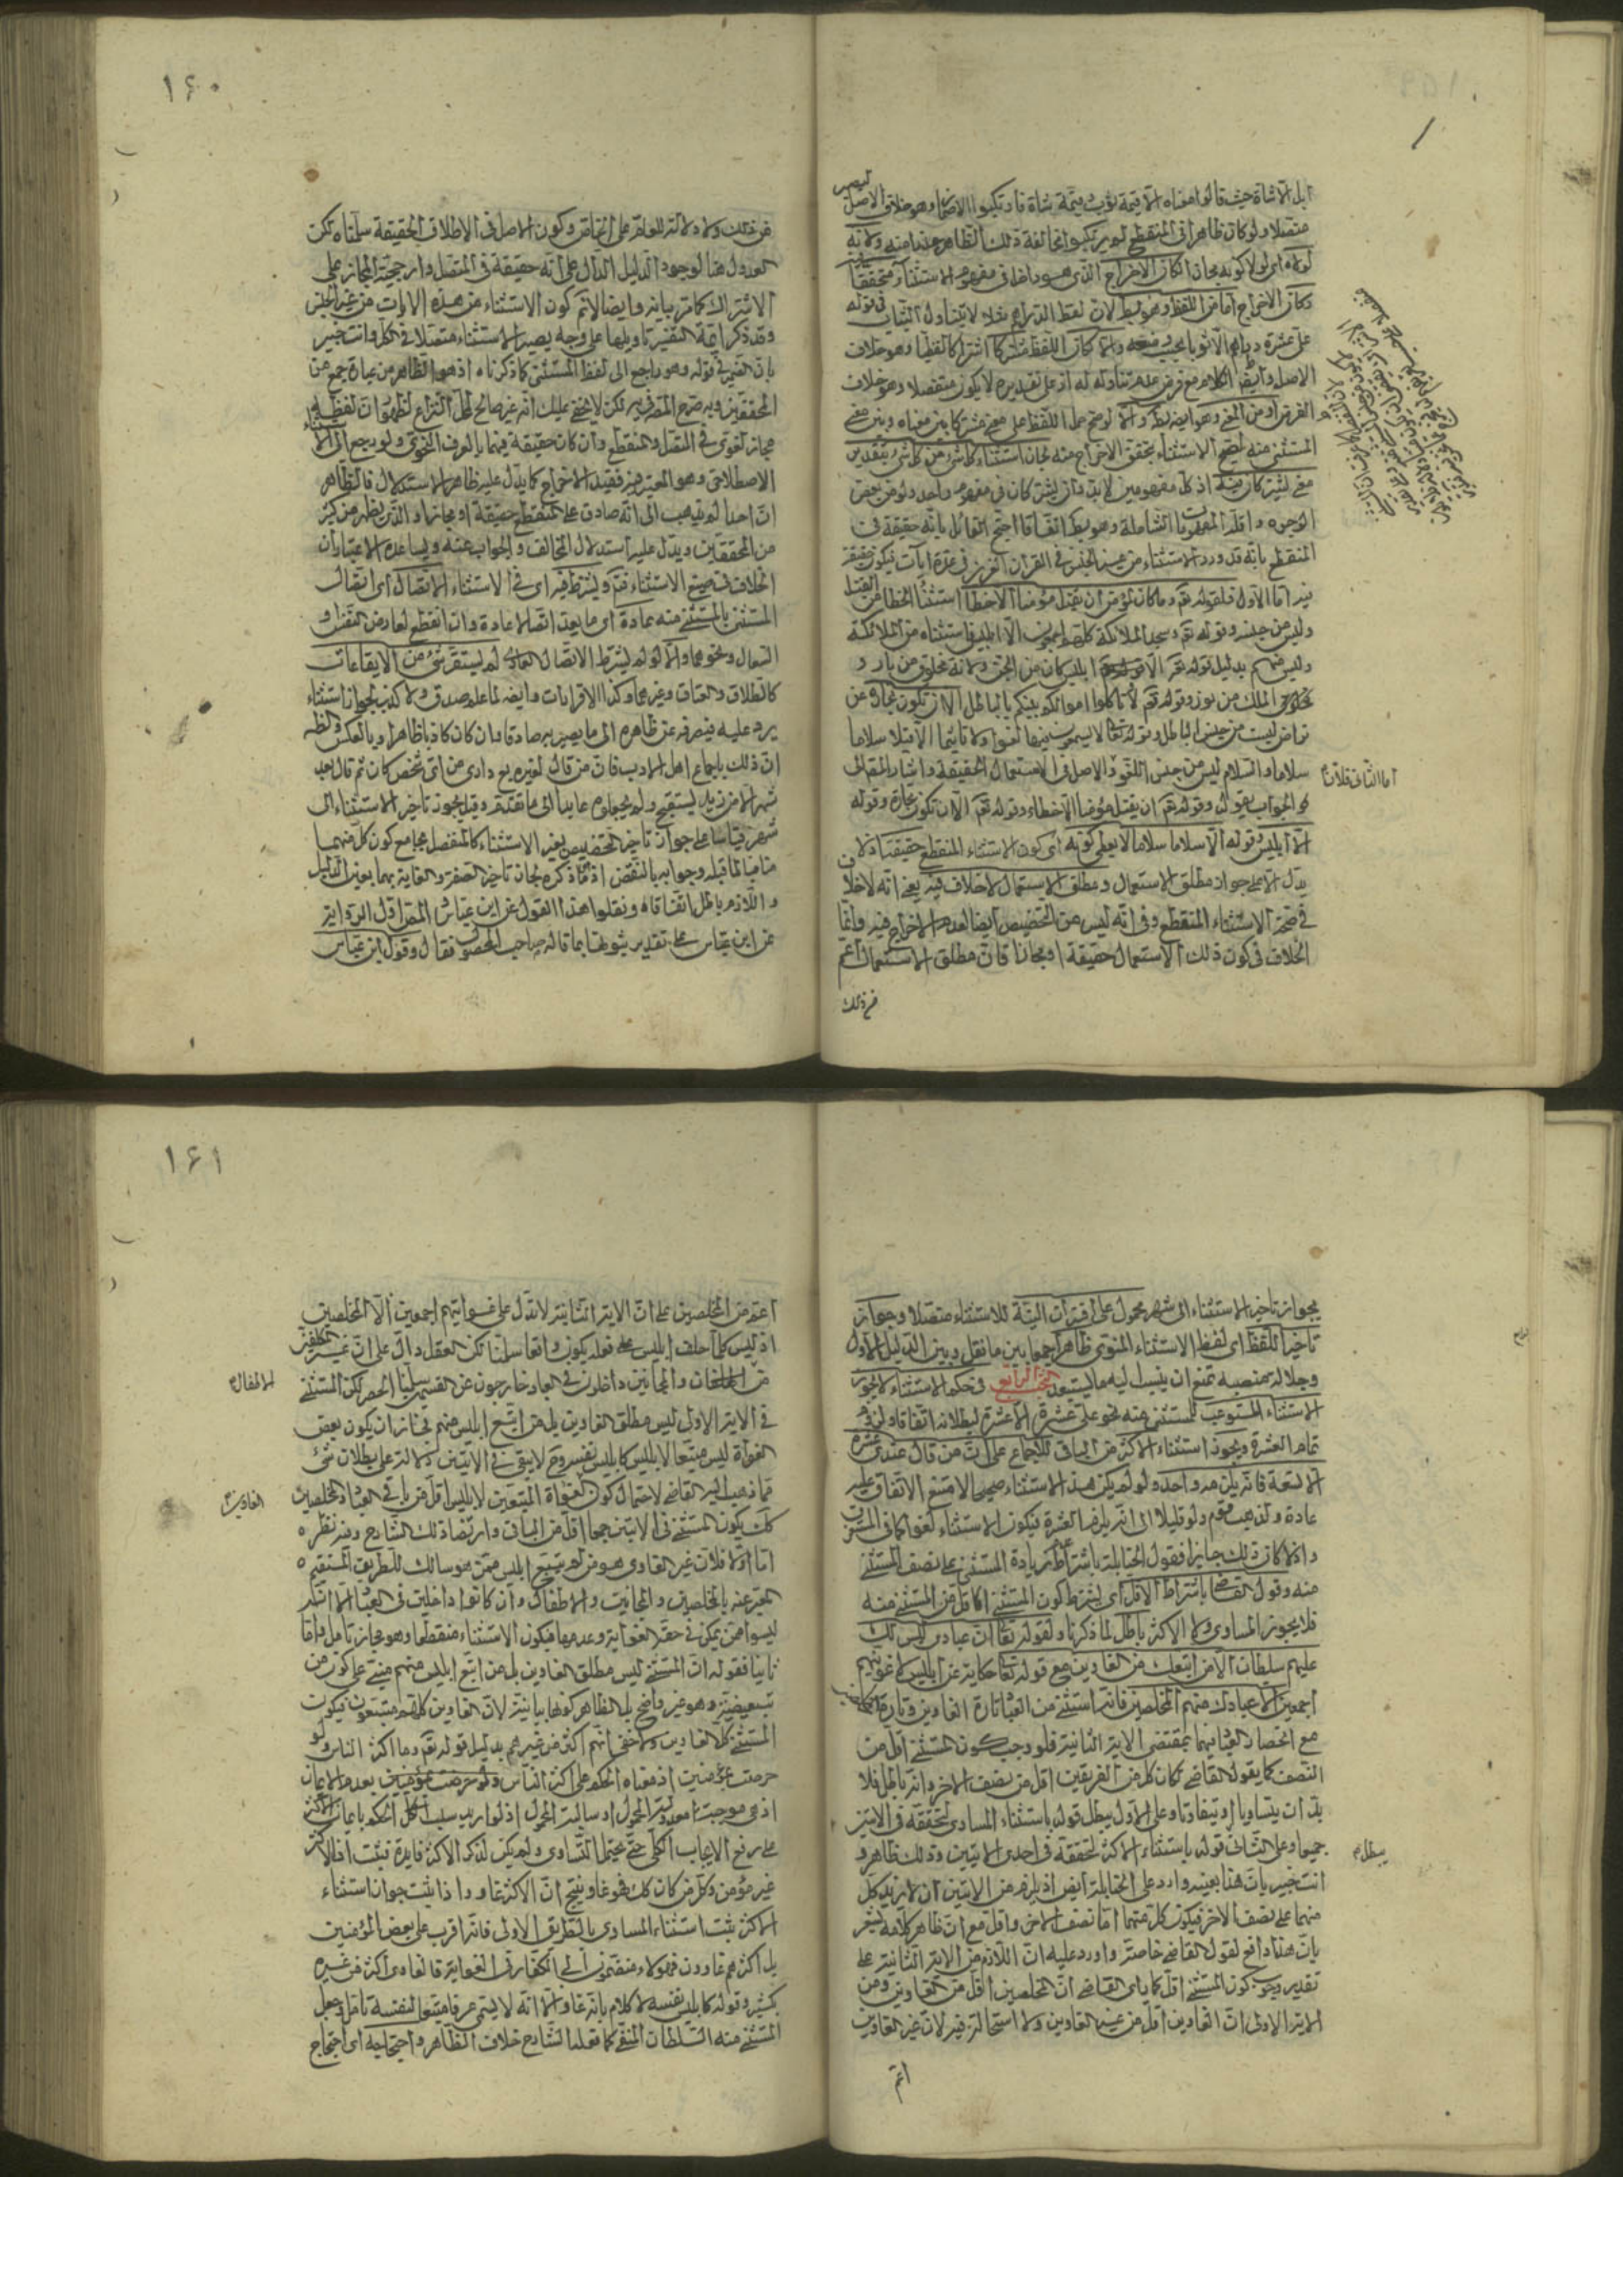 ابل الا شاة حيث قالوا معناه الا قيمة شاة فارتكبوا الاضمار وهو خلاف الاصل ليصير
متصلا ولو كان ظاهرا في المنقطع لم يرتكبوا مخالفة ذلك الظاهر حذرا منه ولانه
لولاه اى لولا كونه مجازا لكان الاخراج الذى هو داخل في مفهوم الاستثناء متحققا
وكان الاخراج اما من اللفظ وهو بط لان لفظ الدراهم مثلا لا يتناول الثياب في قوله
على عشرة دراهم الا ثوبا بحسب وضعه والا كان اللفظ مشتركا اشتراكا لفظيا وهو خلاف
الاصل وايضا الكلام مع فرض عدم تناوله له اذ على تقديره لا يكون منفصلا وهو خلاف
الفرض او من المعنى وهو ايضا بط والا لو صح حمل اللفظ على معنى مشترك بين معناه وبين معنى
المستثنى منه ليصح الاستثناء بتحقق الاخراج منه لجاز استثناء كل شئ من كل شئ بتقدير
معنى اشتركا فيه اذ كل مفهومين لا بد وان يشتركان في مفهوم واحد ولو من بعض
الوجوه واقله المفهومات الشاملة وهو بط اتفاقا احتج القائل بانه حقيقة في
المنقطع بانه قد ورد الاستثناء من غير الجنس في القران العزيز في عدة ايات فيكون حقيقة
فيه اما الاول فلقوله تعم وما كان لمؤمن ان يقتل مؤمنا الا خطأ استثنا الخطا من القتل
وليس من جنسه وقوله تعم وسجد الملائكة كلهم اجمعون الا ابليس فاستثناه من الملائكة
وليس منهم بدليل قوله تعم الا ابليس كان من الجن ولانه مخلوق من نار و
مخلوق الملك من نور وقوله تعم لا تاكلوا اموالكم بينكم بالباطل الا ان تكون تجارة عن
تراض ليست من جنس الباطل وقوله تعا لا يسمعون فيها لغوا ولا تاثيما الا قيلا سلاما
سلاما والسلام ليس من جنس اللغو والاصل في الاستعمال الحقيقة واشار المص الى
اما الثاني فلان
الجواب بقوله وقوله تعم ان يقتل مؤمنا الا خطاء وقوله تعم الا ان تكون تجارة وقوله
الا ابليس وقوله الا سلاما سلاما لا يعطي كونه اى كون الاستثناء المنقطع حقيقة اذ لا
يدل الا على جواز مطلق الاستعمال ومطلق الاستعمال لا خلاف فيه يعنى انه لا خلاف
في صحة الاستثناء المنقطع وفى انه ليس من التخصيص ايضا لعدم الاخراج فيه وانما
الخلاف في كون ذلك الاستعمال حقيقة او مجازا فان مطلق الاستعمال اعم
من ذلك
١٦٠
من ذلك ولا دلالة للعام على الخاص وكون الاصل في الاطلاق الحقيقة سلمناه لكن
العدول هنا لوجود الدليل الدال على انه حقيقة في المتصل وارجحية المجاز على
الاشتراك كما مر بيانه وايضا لا تم كون الاستثناء من هذه الايات من غير الجنس
وقد ذكر ائمة التفسير تاويلها على وجه يصير الاستثناء متصلا في الكل وانت خبير
بان الضمير في قوله وهو راجع الى لفظ المستثنى كما ذكرناه اذ هو الظاهر من عبارة جمع من
المحققين وبه صرح المص فى يه لكن لا يخفى عليك انه غير صالح لمحل النزاع لظهور ان لفظ الاستثناء
مجاز لغوى في المتصل والمنقطع وان كان حقيقة فيهما بالعرف النحوى ولو رجع الى
الاصطلاحى وهو المعتبر فيه قيد الاخراج كما يدل عليه ظاهر الاستدلال فالظاهر
ان احدا لم يذهب الى انه صادق على المنقطع حقيقة او مجازا والذى يظهر من كثير
من المحققين ويدل عليه استدلال المخالف والجواب عنه ويساعده الاعتبار ان
الخلاف في صيغ الاستثناء فقد ويشترط فيه اى في الاستثناء الاتصال اى اتصال
المستثنى بالمستثنى منه عادة اى ما يعد اتصالا عادة وان انقطع لعارض التنفس و
السعال ونحوهما والا لو لم يشترط الاتصال العادى لم يستقر شئ من الايقاعات
كالطلاق والعتاق وغيرهما وكذا الاقرارات وايضا لما علم صدق ولا كذب لجواز استثناء
يرد عليه فيصرفه عن ظاهره الى ما يصير به صادقا وان كان كاذبا ظاهرا وبالعكس
ان ذلك باجماع اهل الادب فان من قال لغيره بع دارى من اى شخص كان ثم قال بعد
شهر الا من زيد يستقبح ولم يجعلوه عايدا الى ما تقدم وقيل يجوز تاخير الاستثناء الى
شهر قياسا على جواز تاخير التخصيص بغير الاستثناء كالمنفصل بجامع كون كل منهما
منافيا لما قبله وجوابه بالنقض اذ ما ذكره لجاز تاخير الصفة والغاية بهما بعين الدليل
واللازم باطل اتفاقا ونقلوا هذا القول عن ابن عباس المص اول الرواية
عن ابن عباس على تقدير ثبوتها بما قاله صاحب المحصول فقال وقول ابن عباس
بجواز تاخير الاستثناء الى شهر محمول على اقتران النية للاستثناء متصلا وجواز
تاخير اللفظ اى لفظ الاستثناء المنوى ظاهرا جمعا بين ما نقل وبين الدليل الاول
وجلالة منصبه تمنع ان ينسب اليه ما يستبعد البحث الرابع في حكم الاستثناء لا يجوز
الاستثناء المستوعب للمستثنى منه نحو على عشرة الا عشرة لبطلانه اتفاقا ولزوم
تمام العشرة ويجوز استثناء الاكثر من الباقى للاجماع على ان من قال عندى عشرة
الا تسعة فانه يلزمه واحد ولو لم يكن هذا الاستثناء صحيحا لامتنع الاتفاق عليه
عادة ولذهب قوم ولو قليلا الى انه يلزمه العشرة فيكون الاستثناء لغوا كما في المستوعب
واذا كان ذلك جايزا فقول الحنابلة باشتراط عدم زيادة المستثنى على نصف المستثنى
منه وقول القاضى باشتراط الاقل اى يشترط كون المستثنى اقل من المستثنى منه
فلا يجوز المساوى ولا الاكثر باطل لما ذكرنا ولقوله تعا ان عبادى ليس لك
عليهم سلطان الا من اتبعك من الغاوين مع قوله تعا حكاية عن ابليس لاغوينهم
اجمعين الا عبادك منهم المخلصين فانه استثنى من العباد تارة الغاوين وتارة المخلصين
مع انحصار العباد فيهما بمقتضى الاية الثانية فلو وجب كون المستثنى اقل من
النصف كما يقوله القاضى لكان كل من الفريقين اقل من نصف الاخر وانه باطل فلا
بد ان يتساويا او يتفاوتا وعلى الاول يبطل قوله باستثناء المساوى لتحققه في الايتين
جميعا وعلى الثانى قوله باستثناء الاكثر لتحققه في احدى الايتين وذلك ظاهر و
يبطل
انت خبير بان هذا بعينه وارد على الحنابلة ايض اذ يلزم من الايتين ان لا يزيد كل
منهما على نصف الاخر فيكون كل منهما اما نصف الاخر واقل مع ان ظاهر كلامه يشعر
بان هذا دافع لقول القاضى خاصة واورد عليه ان اللازم من الاية الثانية على
تقدير وجوب كون المستثنى اقل كما يراه القاضى ان المخلصين اقل من الغاوين ومن
الاية الاولى ان الغاوين اقل من غير الغاوين ولا استحالة فيه لان غير الغاوين
اعم
١٦١
اعم من المخلصين على ان الاية الثانية لا تدل على غوايتهم اجمعين الا المخلصين
اذ ليس كلما حلف ابليس على فعله يكون واقعا سلمنا لكن العقل دال على ان غير المكلفين
من الاطفال والمجانين داخلون في العباد خارجون عن القسمين سلمنا الحصر لكن المستثنى
في الاية الاولى ليس مطلق الغاوين بل من اتبع ابليس منهم فجاز ان يكون بعض
الغواة ليس متبعا لابليس كابليس نفسه وح لا يبقى في الايتين دلالة على بطلان شئ
مما ذهب اليه القاضى لاحتمال كون الغواة المتبعين لابليس اقل من باقى العباد والمخلصين
الغاوين
كك يكون المستثنى في الايتين جميعا اقل من الباقى وارتضاه ذلك الشارح وفيه نظر
اما اولا فلان غير الغاوى هو من لم يتبع ابليس ممن هو سالك للطريق المستقيم
المعبر عنه بالمخلصين والمجانين والاطفال وان كانوا داخلين في العباد الا انهم
ليسوا ممن يمكن في حقه الغواية وعدمها فيكون الاستثناء منقطعا وهو مجاز تامل واما
ثانيا فقوله ان المستثنى ليس مطلق الغاوين بل من اتبع ابليس منهم مبنى على كون من
تبعيضية وهو غير واضح بل الظاهر كونها بيانية لان الغاوين كلهم متبعون فيكون
المستثنى كل الغاوين ولا خفى انهم اكثر من غيرهم بدليل قوله تعم وما اكثر الناس ولو
حرصت بمؤمنين اذ معناه الحكم على اكثر الناس بعدم الايمان
اذ هى موجبة معدولة المحمول او سالبة المحمول اذ لو اريد سلب الحكم بايمان الاكثر
على رفع الايجاب الكلى حتى يحتمل التساوى ولم يكن لذكر الاكثر فايدة فثبت ان الاكثر
غير مؤمن وكل من كان كك فهو غاو ينتج ان الاكثر غاو واذا ثبت جواز استثناء
الاكثر يثبت استثناء المساوى بالطريق الاولى فانه اقرب على بعض المؤمنين
بل اكثرهم غاوون فهولاء منضمون الى الكفار في الغواية فالغاوى اكثر من غيره
بكثير وقوله كابليس نفسه لا كلام بانه غاو الا انه لا يسمى عرفا متبعا لنفسه تامل وجعل
المستثنى منه السلطان المنفى كما فعله الشارح خلاف الظاهر واحتجاجه اى احتجاج